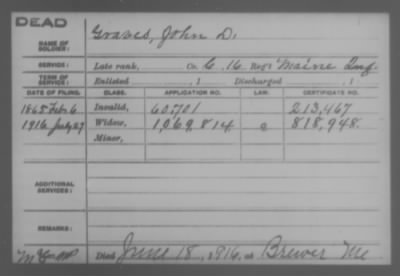 DEAD
NAME OF SOLDIER: Graves, John D.
SERVICE: Late rank, Co. C. 16 Reg't Maine Inf.
TERM OF SERVICE: Enlisted , 1 Discharged , 1
DATE OF FILING. CLASS. APPLICATION NO. LAW. CERTIFICATE NO.
1865 Feb. 6 Invalid, 60,701 213,467
1916 July 27 Widow, 1,069,814 c 818,948
Minor,
ADDITIONAL SERVICES:
REMARKS:
Died June 18, 1916, at Brewer Me